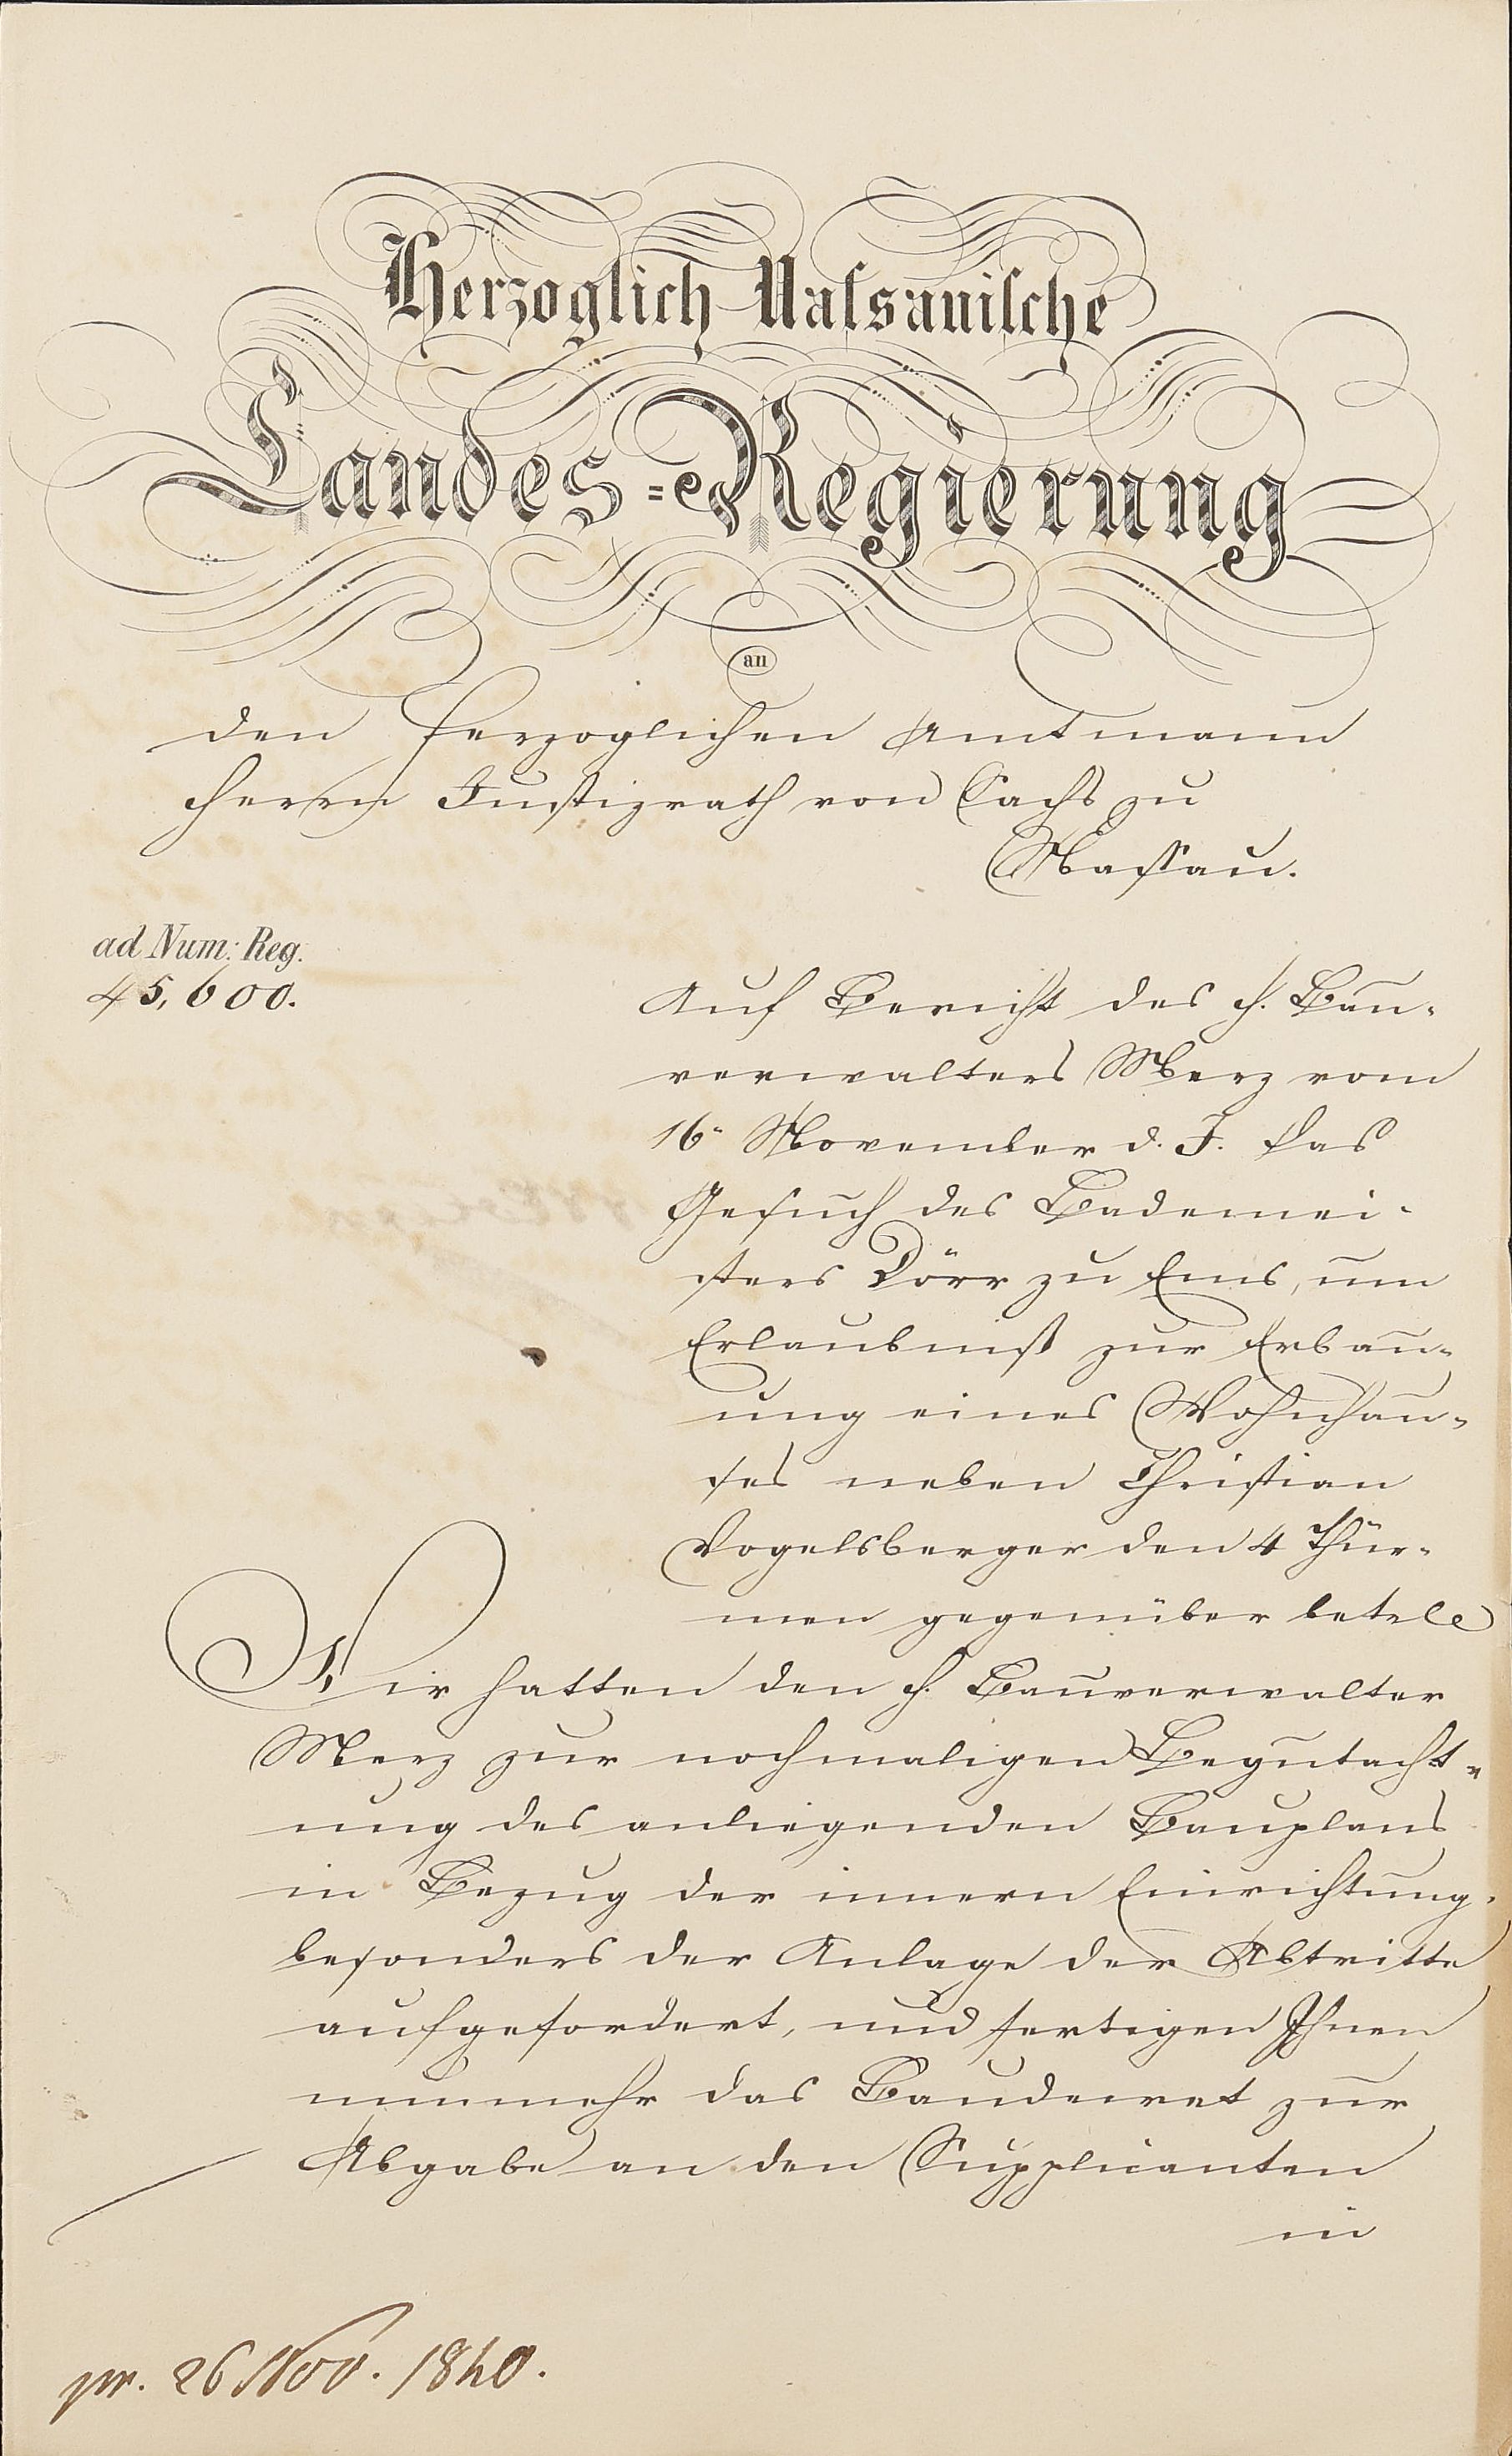 Herzoglich Nassauische
Landes-Regierung
an
den Herzoglichen Amtmann
Herrn Justizrath von Sachs zu
Nassau.
ad Num: Reg.
45,600.
Auf Bericht des H. Bau-
verwalters Merz vom
16n November d. J. das
Gesuch des Bademei-
sters Dörr zu Ems, um
Erlaubniß zur Erbau-
ung eines Wohnhau-
ses neben Christian
Vogelsberger den 4 Thür-
men gegenüber betrle
Wir hatten den H. Bauverwalter
Merz zur nochmaligen Begutacht-
ung des anliegenden Bauplans
in Bezug der innern Einrichtung
besonders der Anlage der Abtritte
aufgefordert, und fertigen Ihnen
nunmehr das Baudecret zur
Abgabe an den Supplicanten
in
pr. 26 Nov. 1840.